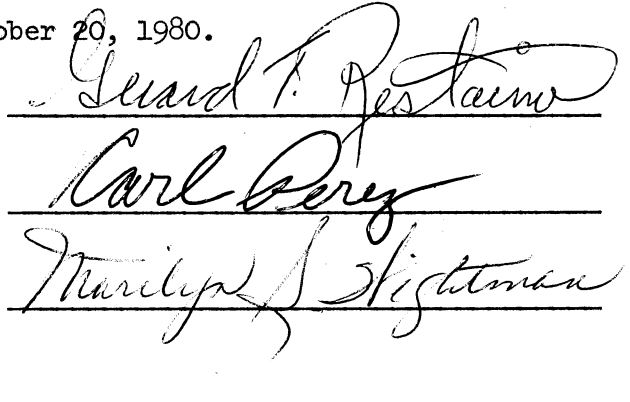 ober 20, 1980.
Gerard T. Restaino
Carl Perez
Marilyn S Wightman